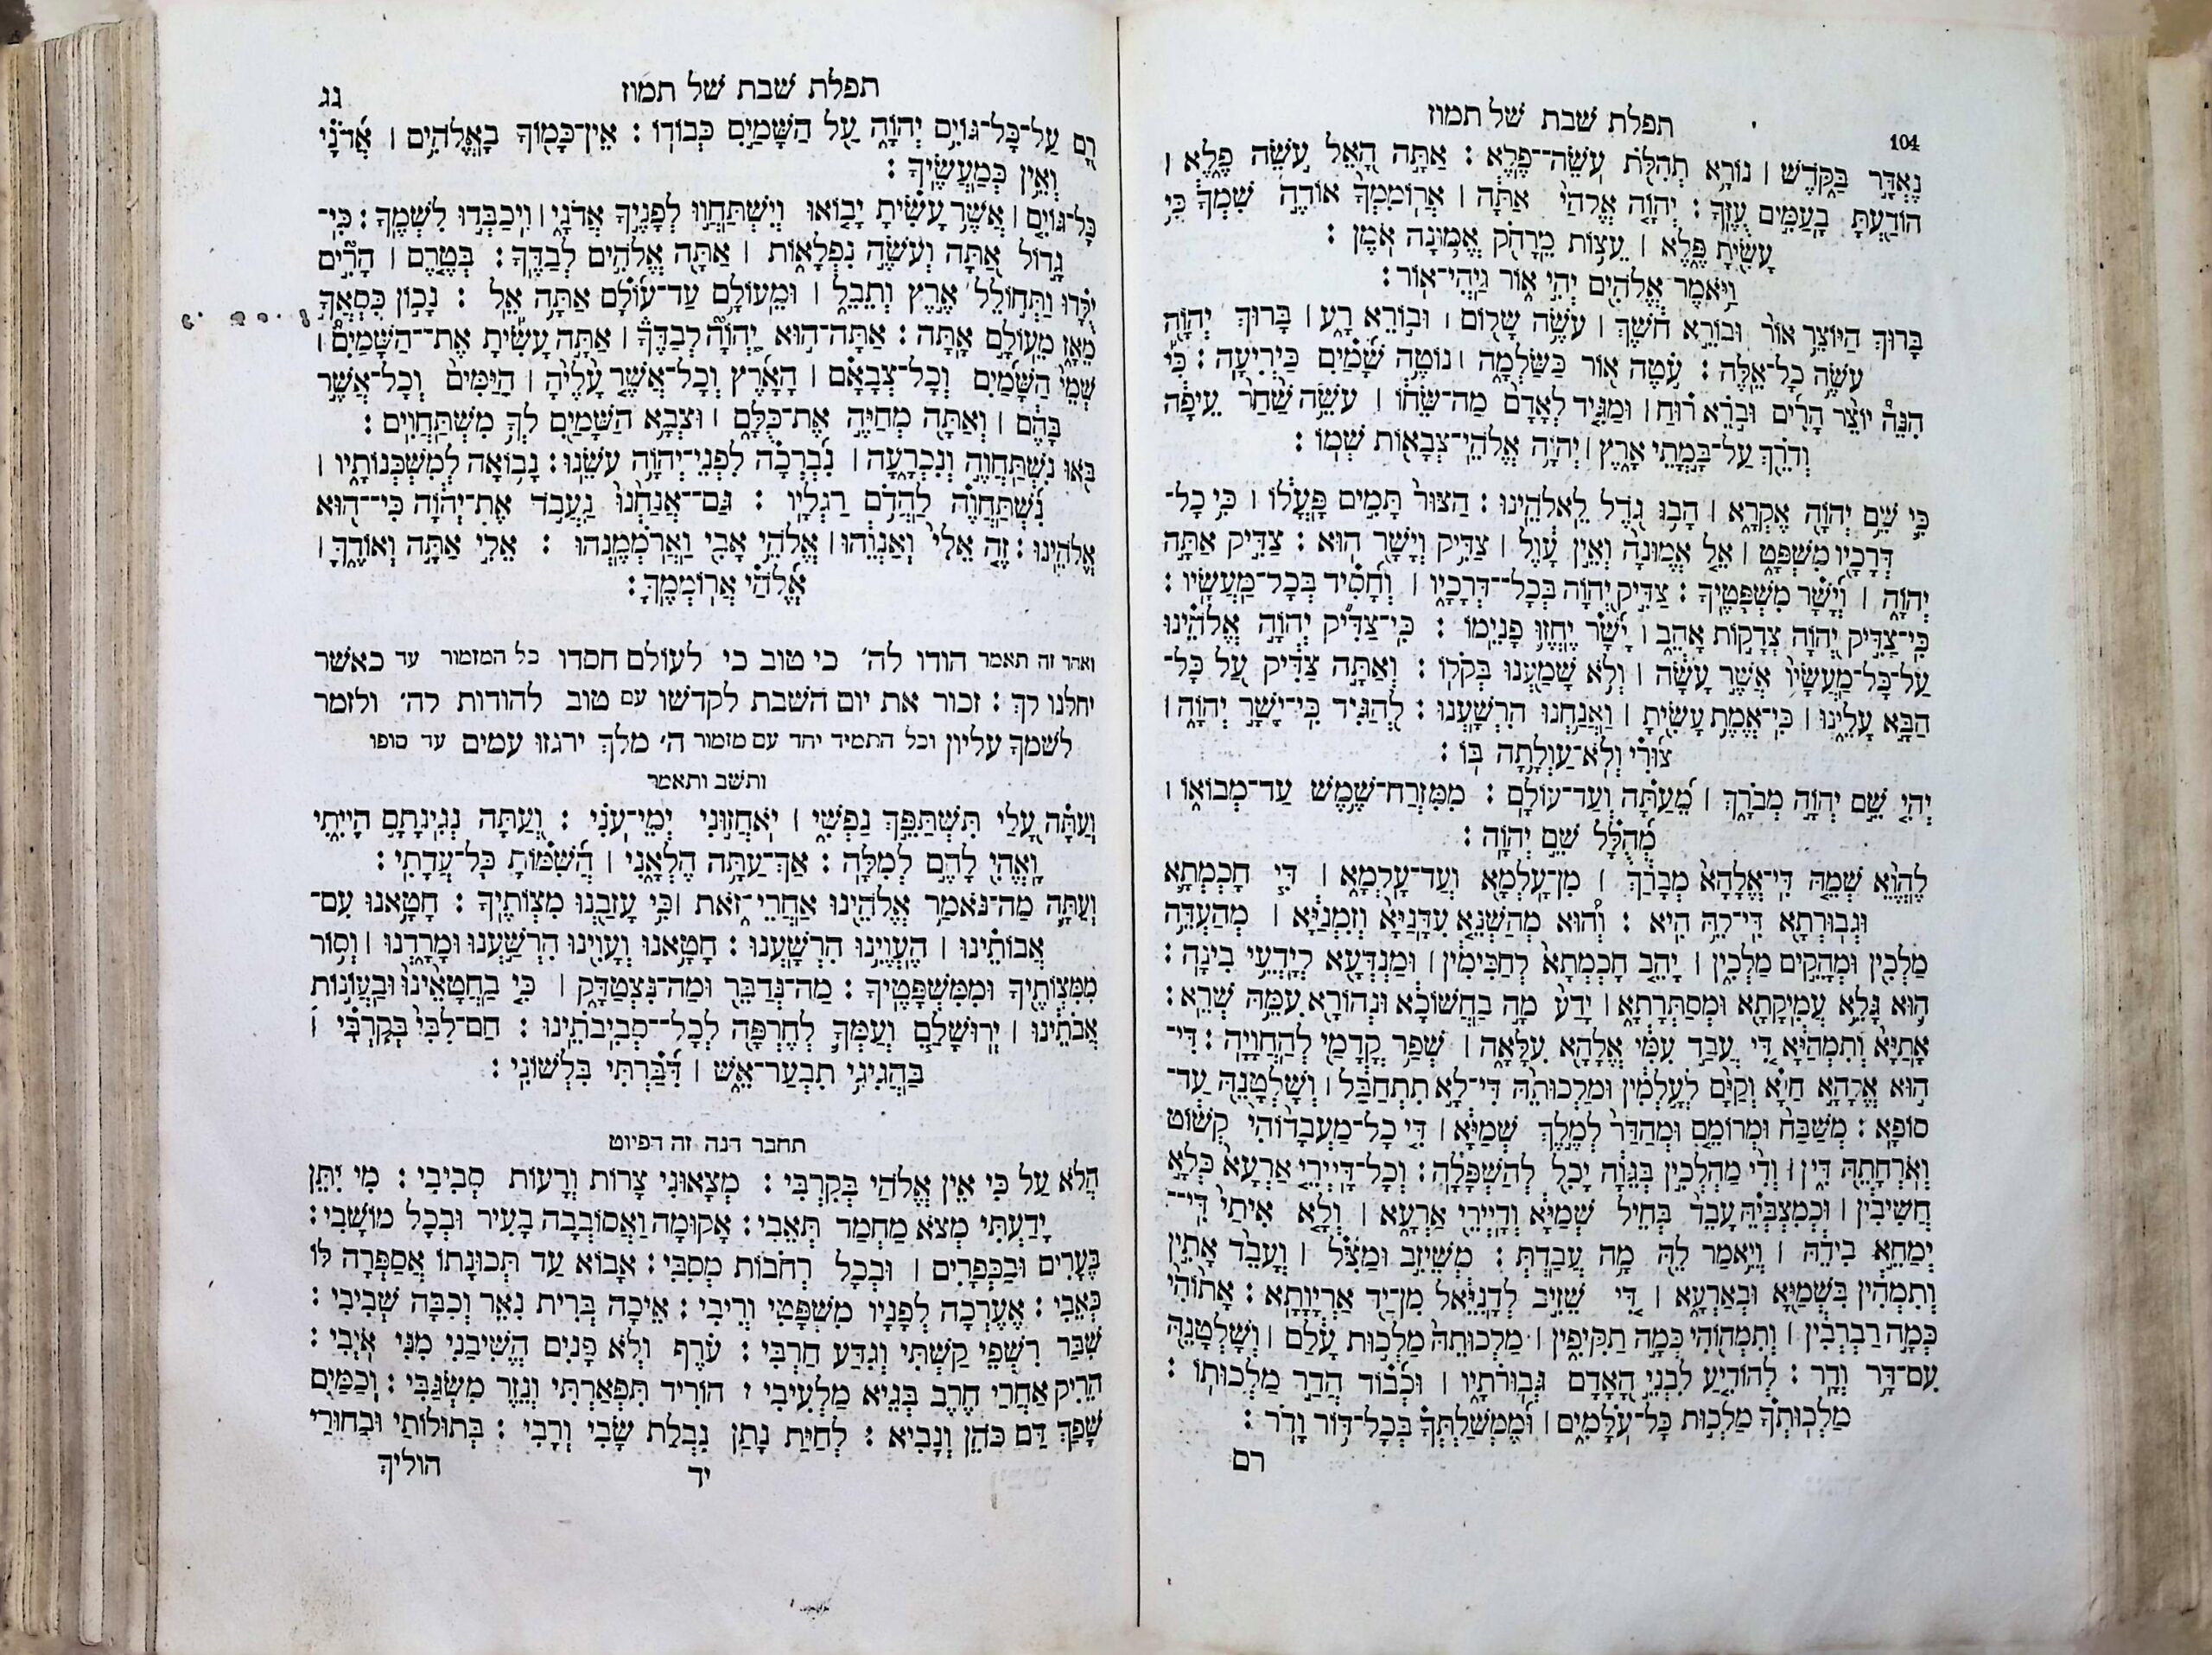 תפלת שבת של תמוז
104
נֶאְדָּר בַּקֹּדֶשׁ | נוֹרָא תְהִלֹּת עֹשֵׂה־פֶלֶא : אַתָּה הָאֵל עֹשֵׂה פֶלֶא |
הוֹדַעְתָּ בָעַמִּים עֻזֶּךָ : יְהוָה אֱלֹהַי אַתָּה | אֲרוֹמִמְךָ אוֹדֶה שִׁמְךָ כִּי
עָשִׂיתָ פֶּלֶא | עֵצוֹת מֵרָחֹק אֱמוּנָה אֹמֶן :
וַיֹּאמֶר אֱלֹהִים יְהִי אוֹר וַיְהִי־אוֹר :
בָּרוּךְ הַיּוֹצֵר אוֹר וּבוֹרֵא חֹשֶׁךְ | עֹשֶׂה שָׁלוֹם | וּבוֹרֵא רָע | בָּרוּךְ יְהוָה
עֹשֶׂה כָל־אֵלֶּה : עֹטֶה אוֹר כַּשַּׂלְמָה | נוֹטֶה שָׁמַיִם כַּיְרִיעָה : כִּי
הִנֵּה יוֹצֵר הָרִים וּבֹרֵא רוּחַ | וּמַגִּיד לְאָדָם מַה־שֵּׂחוֹ | עֹשֵׂה שַׁחַר עֵיפָה
וְדֹרֵךְ עַל־בָּמֳתֵי אָרֶץ | יְהוָה אֱלֹהֵי־צְבָאוֹת שְׁמוֹ :
כִּי שֵׁם יְהוָה אֶקְרָא | הָבוּ גֹדֶל לֵאלֹהֵינוּ : הַצּוּר תָּמִים פָּעֳלוֹ | כִּי כָל־
דְּרָכָיו מִשְׁפָּט | אֵל אֱמוּנָה וְאֵין עָוֶל | צַדִּיק וְיָשָׁר הוּא : צַדִּיק אַתָּה
יְהוָה | וְיָשָׁר מִשְׁפָּטֶיךָ : צַדִּיק יְהוָה בְּכָל־דְּרָכָיו | וְחָסִיד בְּכָל־מַעֲשָׂיו :
כִּי־צַדִּיק יְהוָה צְדָקוֹת אָהֵב | יָשָׁר יֶחֱזוּ פָנֵימוֹ : כִּי־צַדִּיק יְהוָה אֱלֹהֵינוּ
עַל־כָּל־מַעֲשָׂיו אֲשֶׁר עָשָׂה | וְלֹא שָׁמַעְנוּ בְּקֹלוֹ : וְאַתָּה צַדִּיק עַל כָּל־
הַבָּא עָלֵינוּ | כִּי־אֱמֶת עָשִׂיתָ | וַאֲנַחְנוּ הִרְשָׁעְנוּ : לְהַגִּיד כִּי־יָשָׁר יְהוָה |
צוּרִי וְלֹא־עַוְלָתָה בּוֹ :
יְהִי שֵׁם יְהוָה מְבֹרָךְ | מֵעַתָּה וְעַד־עוֹלָם : מִמִּזְרַח־שֶׁמֶשׁ עַד־מְבוֹאוֹ |
מְהֻלָּל שֵׁם יְהוָה :
לֶהֱוֵא שְׁמֵהּ דִּי־אֱלָהָא מְבָרַךְ | מִן־עָלְמָא וְעַד־עָלְמָא | דִּי חָכְמְתָא
וּגְבוּרְתָא דִּי־לֵהּ הִיא : וְהוּא מְהַשְׁנֵא עִדָּנַיָּא וְזִמְנַיָּא | מְהַעְדֵּה
מַלְכִין וּמְהָקֵים מַלְכִין | יָהֵב חָכְמְתָא לְחַכִּימִין | וּמַנְדְּעָא לְיָדְעֵי בִינָה :
הוּא גָּלֵא עֲמִיקָתָא וּמְסַתְּרָתָא | יָדַע מָה בַחֲשׁוֹכָא וּנְהוֹרָא עִמֵּהּ שְׁרֵא :
אָתַיָּא וְתִמְהַיָּא דִּי עֲבַד עִמִּי אֱלָהָא עִלָּאָה | שְׁפַר קָדָמַי לְהַחֲוָיָה : דִּי־
הוּא אֱלָהָא חַיָּא וְקַיָּם לְעָלְמִין וּמַלְכוּתֵהּ דִּי־לָא תִתְחַבַּל | וְשָׁלְטָנֵהּ עַד־
סוֹפָא : מְשַׁבַּח וּמְרוֹמֵם וּמְהַדַּר לְמֶלֶךְ שְׁמַיָּא | דִּי כָל־מַעְבָדוֹהִי קְשׁוֹט
וְאֹרְחָתֵהּ דִּין | וְדִי מַהְלְכִין בְּגֵוָה יָכִל לְהַשְׁפָּלָה : וְכָל־דָּיְירֵי אַרְעָא כְּלָא
חֲשִׁיבִין | וּכְמִצְבְּיֵהּ עָבֵד בְּחֵיל שְׁמַיָּא וְדָיְירֵי אַרְעָא | וְלָא אִיתַי דִּי־
יְמַחֵא בִידֵהּ | וְיֵאמַר לֵהּ מָה עֲבַדְתְּ : מְשֵׁיזִב וּמַצִּל | וְעָבֵד אָתִין
וְתִמְהִין בִּשְׁמַיָּא וּבְאַרְעָא | דִּי שֵׁיזִיב לְדָנִיֵּאל מִן־יַד אַרְיָוָתָא : אָתוֹהִי
כְּמָה רַבְרְבִין | וְתִמְהוֹהִי כְּמָה תַקִּיפִין | מַלְכוּתֵהּ מַלְכוּת עָלַם | וְשָׁלְטָנֵהּ
עִם־דָּר וְדָר : לְהוֹדִיעַ לִבְנֵי הָאָדָם גְּבוּרֹתָיו | וּכְבוֹד הֲדַר מַלְכוּתוֹ :
מַלְכוּתְךָ מַלְכוּת כָּל־עֹלָמִים | וּמֶמְשַׁלְתְּךָ בְּכָל־דּוֹר וָדֹר :
רם
תפלת שבת של תמוז
נג
רָם עַל־כָּל־גּוֹיִם יְהוָה עַל הַשָּׁמַיִם כְּבוֹדוֹ : אֵין־כָּמוֹךָ בָאֱלֹהִים | אֲדֹנָי
וְאֵין כְּמַעֲשֶׂיךָ :
כָּל־גּוֹיִם | אֲשֶׁר עָשִׂיתָ יָבוֹאוּ וְיִשְׁתַּחֲווּ לְפָנֶיךָ אֲדֹנָי | וִיכַבְּדוּ לִשְׁמֶךָ : כִּי־
גָדוֹל אַתָּה וְעֹשֵׂה נִפְלָאוֹת | אַתָּה אֱלֹהִים לְבַדֶּךָ : בְּטֶרֶם | הָרִים
יֻלָּדוּ וַתְּחוֹלֵל אֶרֶץ וְתֵבֵל | וּמֵעוֹלָם עַד־עוֹלָם אַתָּה אֵל : נָכוֹן כִּסְאֲךָ
מֵאָז מֵעוֹלָם אָתָּה : אַתָּה־הוּא יְהוָה לְבַדֶּךָ | אַתָּה עָשִׂיתָ אֶת־הַשָּׁמַיִם |
שְׁמֵי הַשָּׁמַיִם וְכָל־צְבָאָם | הָאָרֶץ וְכָל־אֲשֶׁר עָלֶיהָ | הַיַּמִּים וְכָל־אֲשֶׁר
בָּהֶם | וְאַתָּה מְחַיֶּה אֶת־כֻּלָּם | וּצְבָא הַשָּׁמַיִם לְךָ מִשְׁתַּחֲוִים :
בֹּאוּ נִשְׁתַּחֲוֶה וְנִכְרָעָה | נִבְרְכָה לִפְנֵי־יְהוָה עֹשֵׂנוּ : נָבוֹאָה לְמִשְׁכְּנוֹתָיו |
נִשְׁתַּחֲוֶה לַהֲדֹם רַגְלָיו : גַּם־אֲנַחְנוּ נַעֲבֹד אֶת־יְהוָה כִּי־הוּא
אֱלֹהֵינוּ : זֶה אֵלִי וְאַנְוֵהוּ | אֱלֹהֵי אָבִי וַאֲרֹמְמֶנְהוּ : אֵלִי אַתָּה וְאוֹדֶךָּ |
אֱלֹהַי אֲרוֹמְמֶךָּ :
ואחר זה תאמר הודו לה׳ כי טוב כי לעולם חסדו כל המזמור עד כאשר
יחלנו לך : זכור את יום השבת לקדשו עם טוב להודות לה׳ ולזמר
לשמך עליון וכל התמיד יחד עם מזמור ה׳ מלך ירגזו עמים עד סופו
ותשב ותאמר
וְעַתָּה עָלַי תִּשְׁתַּפֵּךְ נַפְשִׁי | יֹאחֲזוּנִי יְמֵי־עֹנִי : וְעַתָּה נְגִינָתָם הָיִיתִי
וָאֱהִי לָהֶם לְמִלָּה : אַךְ־עַתָּה הֶלְאָנִי | הֲשִׁמּוֹתָ כָּל־עֲדָתִי :
וְעַתָּה מַה־נֹּאמַר אֱלֹהֵינוּ אַחֲרֵי־זֹאת | כִּי עָזַבְנוּ מִצְוֹתֶיךָ : חָטָאנוּ עִם־
אֲבוֹתֵינוּ | הֶעֱוִינוּ הִרְשָׁעְנוּ : חָטָאנוּ וְעָוִינוּ הִרְשַׁעְנוּ וּמָרָדְנוּ | וְסוֹר
מִמִּצְוֹתֶיךָ וּמִמִּשְׁפָּטֶיךָ : מַה־נְּדַבֵּר וּמַה־נִּצְטַדָּק | כִּי בַחֲטָאֵינוּ וּבַעֲוֹנוֹת
אֲבֹתֵינוּ | יְרוּשָׁלִַם וְעַמְּךָ לְחֶרְפָּה לְכָל־סְבִיבֹתֵינוּ : חַם־לִבִּי בְּקִרְבִּי |
בַּהֲגִיגִי תִבְעַר־אֵשׁ | דִּבַּרְתִּי בִּלְשׁוֹנִי :
תחבר דנה זה הפיוט
הֲלֹא עַל כִּי אֵין אֱלֹהַי בְּקִרְבִּי : מְצָאוּנִי צָרוֹת וְרָעוֹת סְבִיבִי : מִי יִתֵּן
יָדַעְתִּי מְצֹא מַחְמַד תְּאֵבִי : אָקוּמָה וַאֲסוֹבְבָה בָעִיר וּבְכָל מוֹשָׁבִי :
בֶּעָרִים וּבַכְּפָרִים | וּבְכָל רְחֹבוֹת מְסִבִּי : אָבוֹא עַד תְּכוּנָתוֹ אֲסַפְּרָה לּוֹ
כְּאֵבִי : אֶעֶרְכָה לְפָנָיו מִשְׁפָּטִי וְרִיבִי : אֵיכָה בְּרִית נִאֵר וְכִבָּה שְׁבִיבִי :
שִׁבַּר רִשְׁפֵי קַשְׁתִּי וְגִדַּע חַרְבִּי : עֹרֶף וְלֹא פָנִים הֱשִׁיבַנִי מִנִּי אֹיְבִי :
הֵרִיק אַחֲרַי חֶרֶב בְּגֵיא מַלְעִיבִי : הוֹרִיד תִּפְאַרְתִּי וְנֵזֶר מִשְׂגַּבִּי : וְכַמַּיִם
שָׁפַךְ דַּם כֹּהֵן וְנָבִיא : לְחַיַּת נָתַן נִבְלַת שָׂבִי וְרָבִי : בְּתוּלוֹתַי וּבַחוּרַי
יד
הוליך